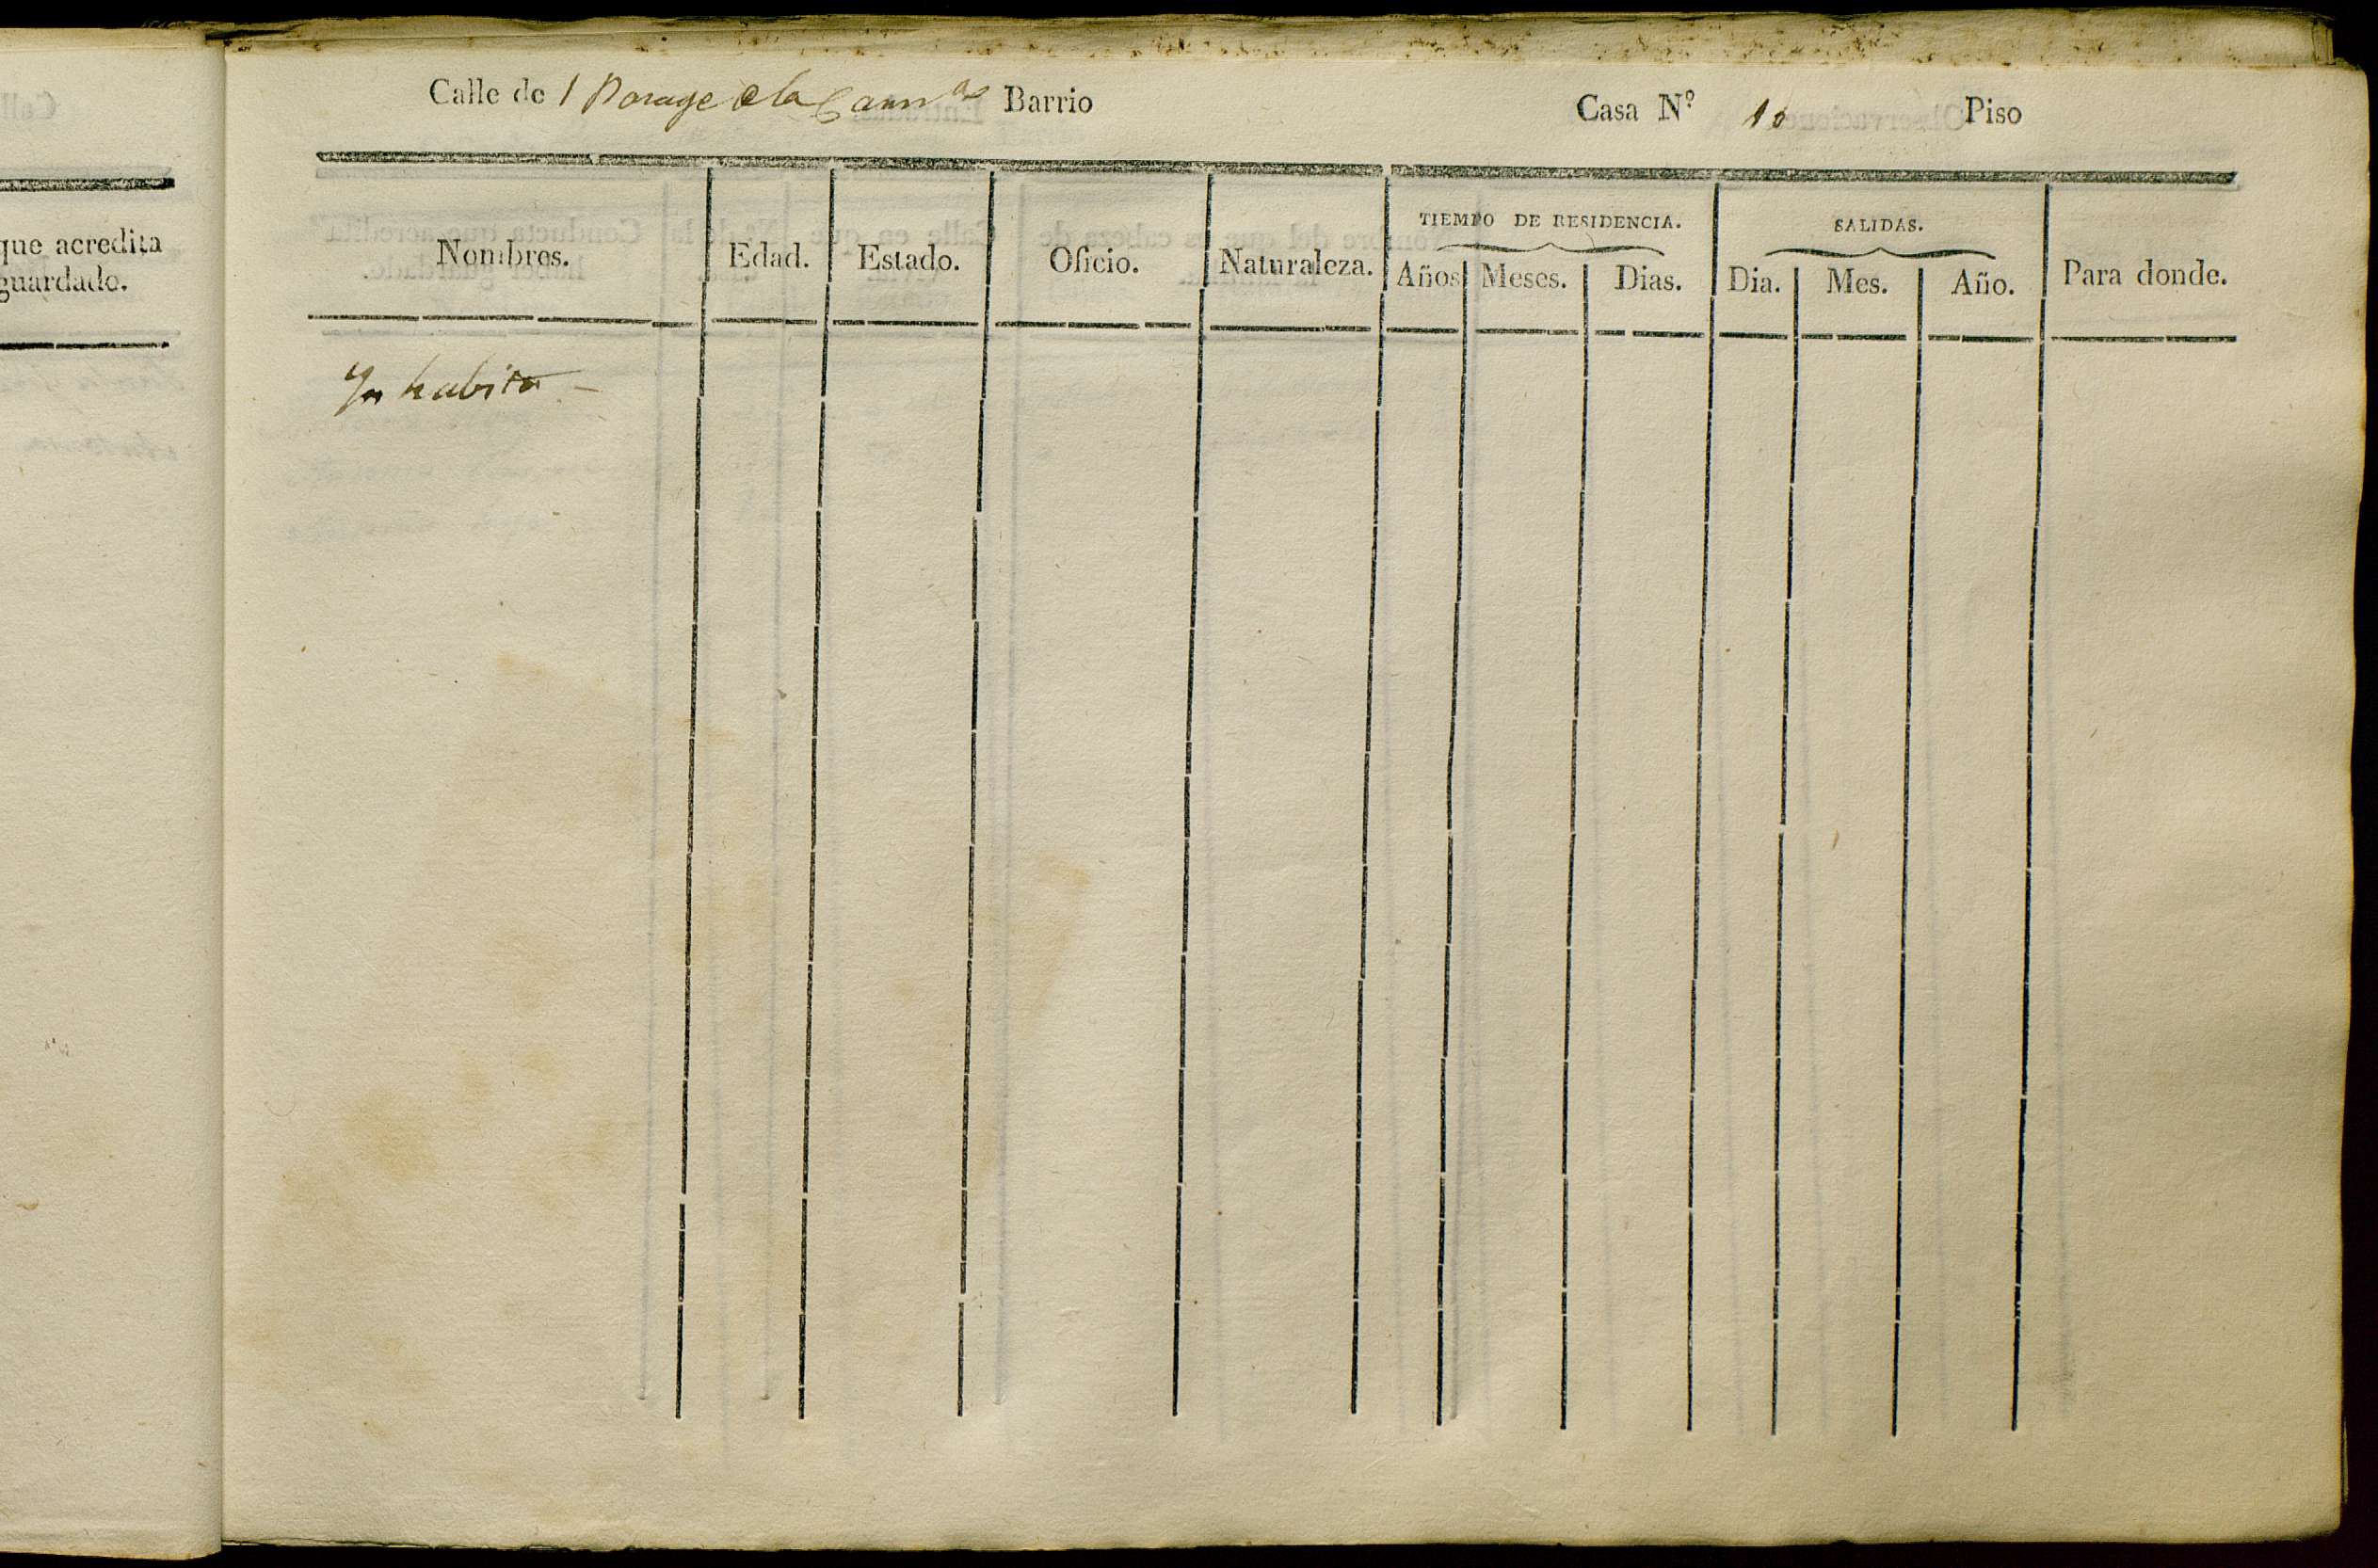 que acredita
guardado.
Calle de l Parage de la Barrio Casa N.º 10 Piso
Nombres. Edad. Estado. Oficio. Naturaleza. TIEMPO DE RESIDENCIA. SALIDAS. Para donde.
Años Meses. Dias. Dia. Mes. Año.
Inhabita